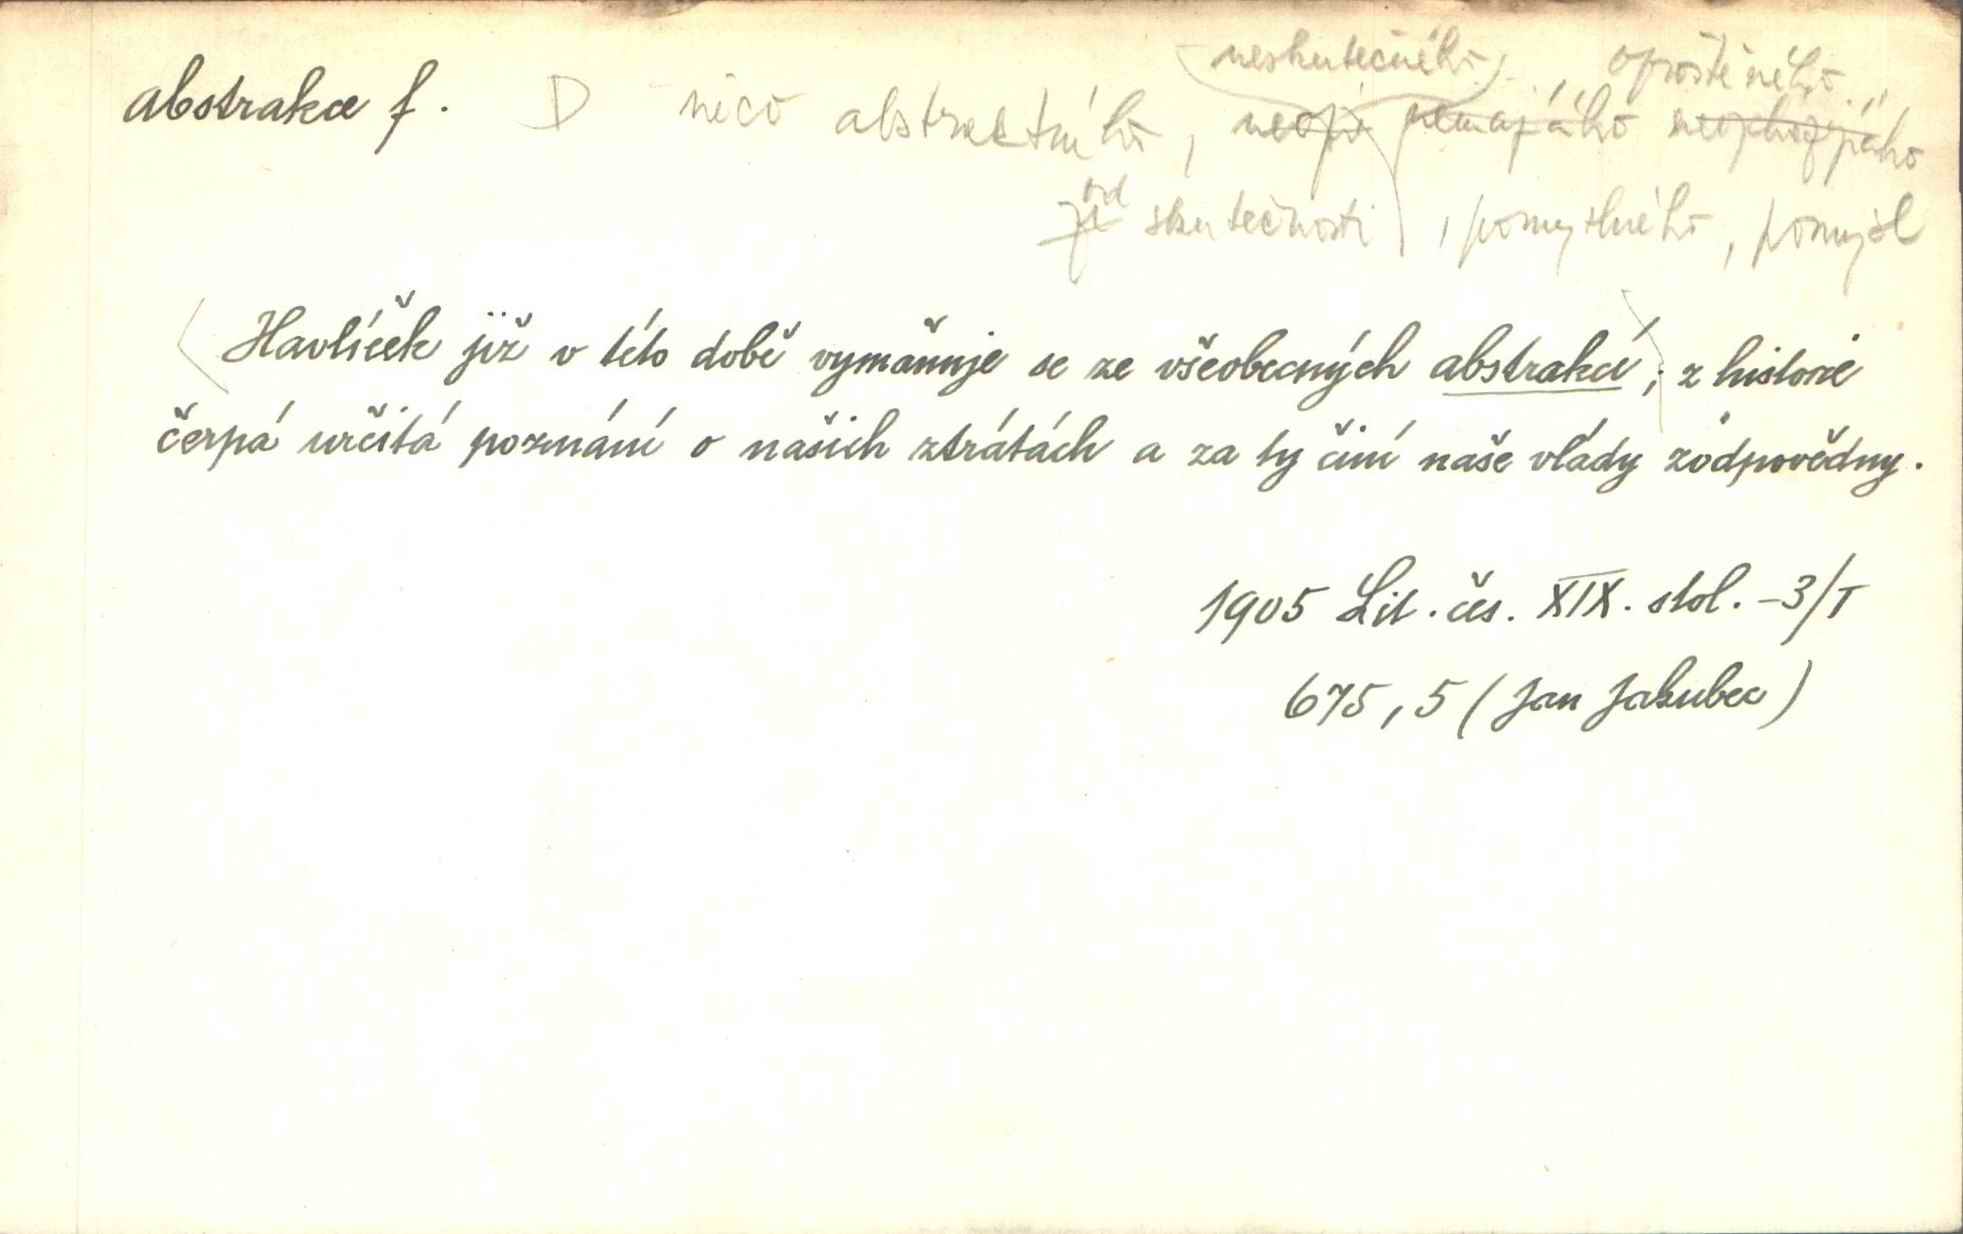 neskutečného, oproštěného
abstrakce f. D něco abstraktního, neopí nemajícího
od
ze skutečnosti, pomyslného, pomysl
Havlíček již v této době vymaňuje se ze všeobecných abstrakcí; z historie
čerpá určitá poznání o našich ztrátách a za ty činí naše vlády zodpovědny.
1905 Lit. čes. XIX. stol. -3/I
675, 5 (Jan Jakubec)